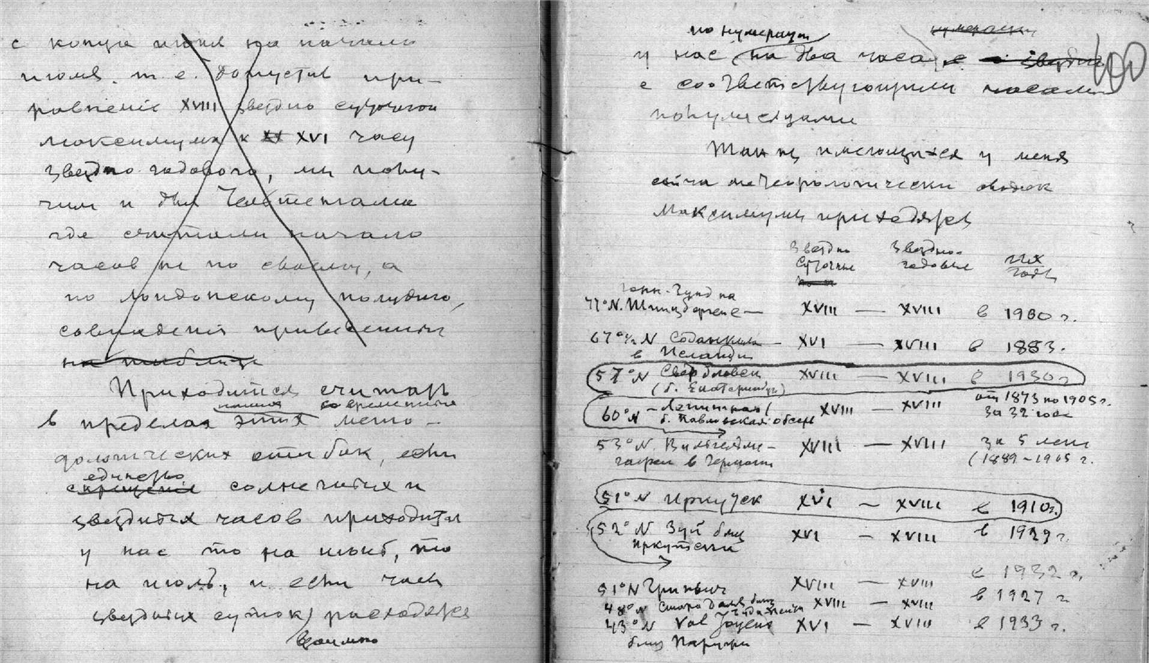 с конца июня на начало
июля. т.е. допустив при-
равнение XVIII звездно суточного
максимума к XVI часу
звездно годового, мы полу-
чим и для
где считали начало
часов не по своему, а
по лондонскому полудню,
совпадения
на таблице
Приходится считать
в пределах этих наших со временных мето-
дологических ошибок, если
единство солнечных и
звездных часов приходится
у нас то на июнь, то
на июль, и если часы
звездных суток расходятся
взаимно
400
по нумерации
у нас на два часа
с соответствующими часами
полумесяцами
Так на имеющихся у меня
метеорологически сводок
максимумы приходятся
Звездно суточные Звездно-годовые их годы
77°N. Шпицбергене — XVIII — XVIII в 1900 г.
67 1/2 N Соданкюля — XVI — XVIII в 1883.
в Исландии
57°N Свердловск XVIII — XVIII в 1930 г.
(б. Екатеринбург)
60°N — Ленинград XVIII — XVIII от 1873 по 1905 г.
б. Павловская обсерв за 32 года
53°N Вильгельмс- XVIII — XVIII за 5 лет
гафен в Германии (1889-1905 г.
51°N Иркутск XVI — XVIII в 1910 г.
52°N Зуй близ XVI — XVIII в 1929 г.
Иркутска
51°N Гринвич XVIII — XVIII в 1932 г.
48°N близ XVIII — XVIII в 1927 г
43°N Val Joyeux XVI — XVIII в 1933 г.
близ Парижа